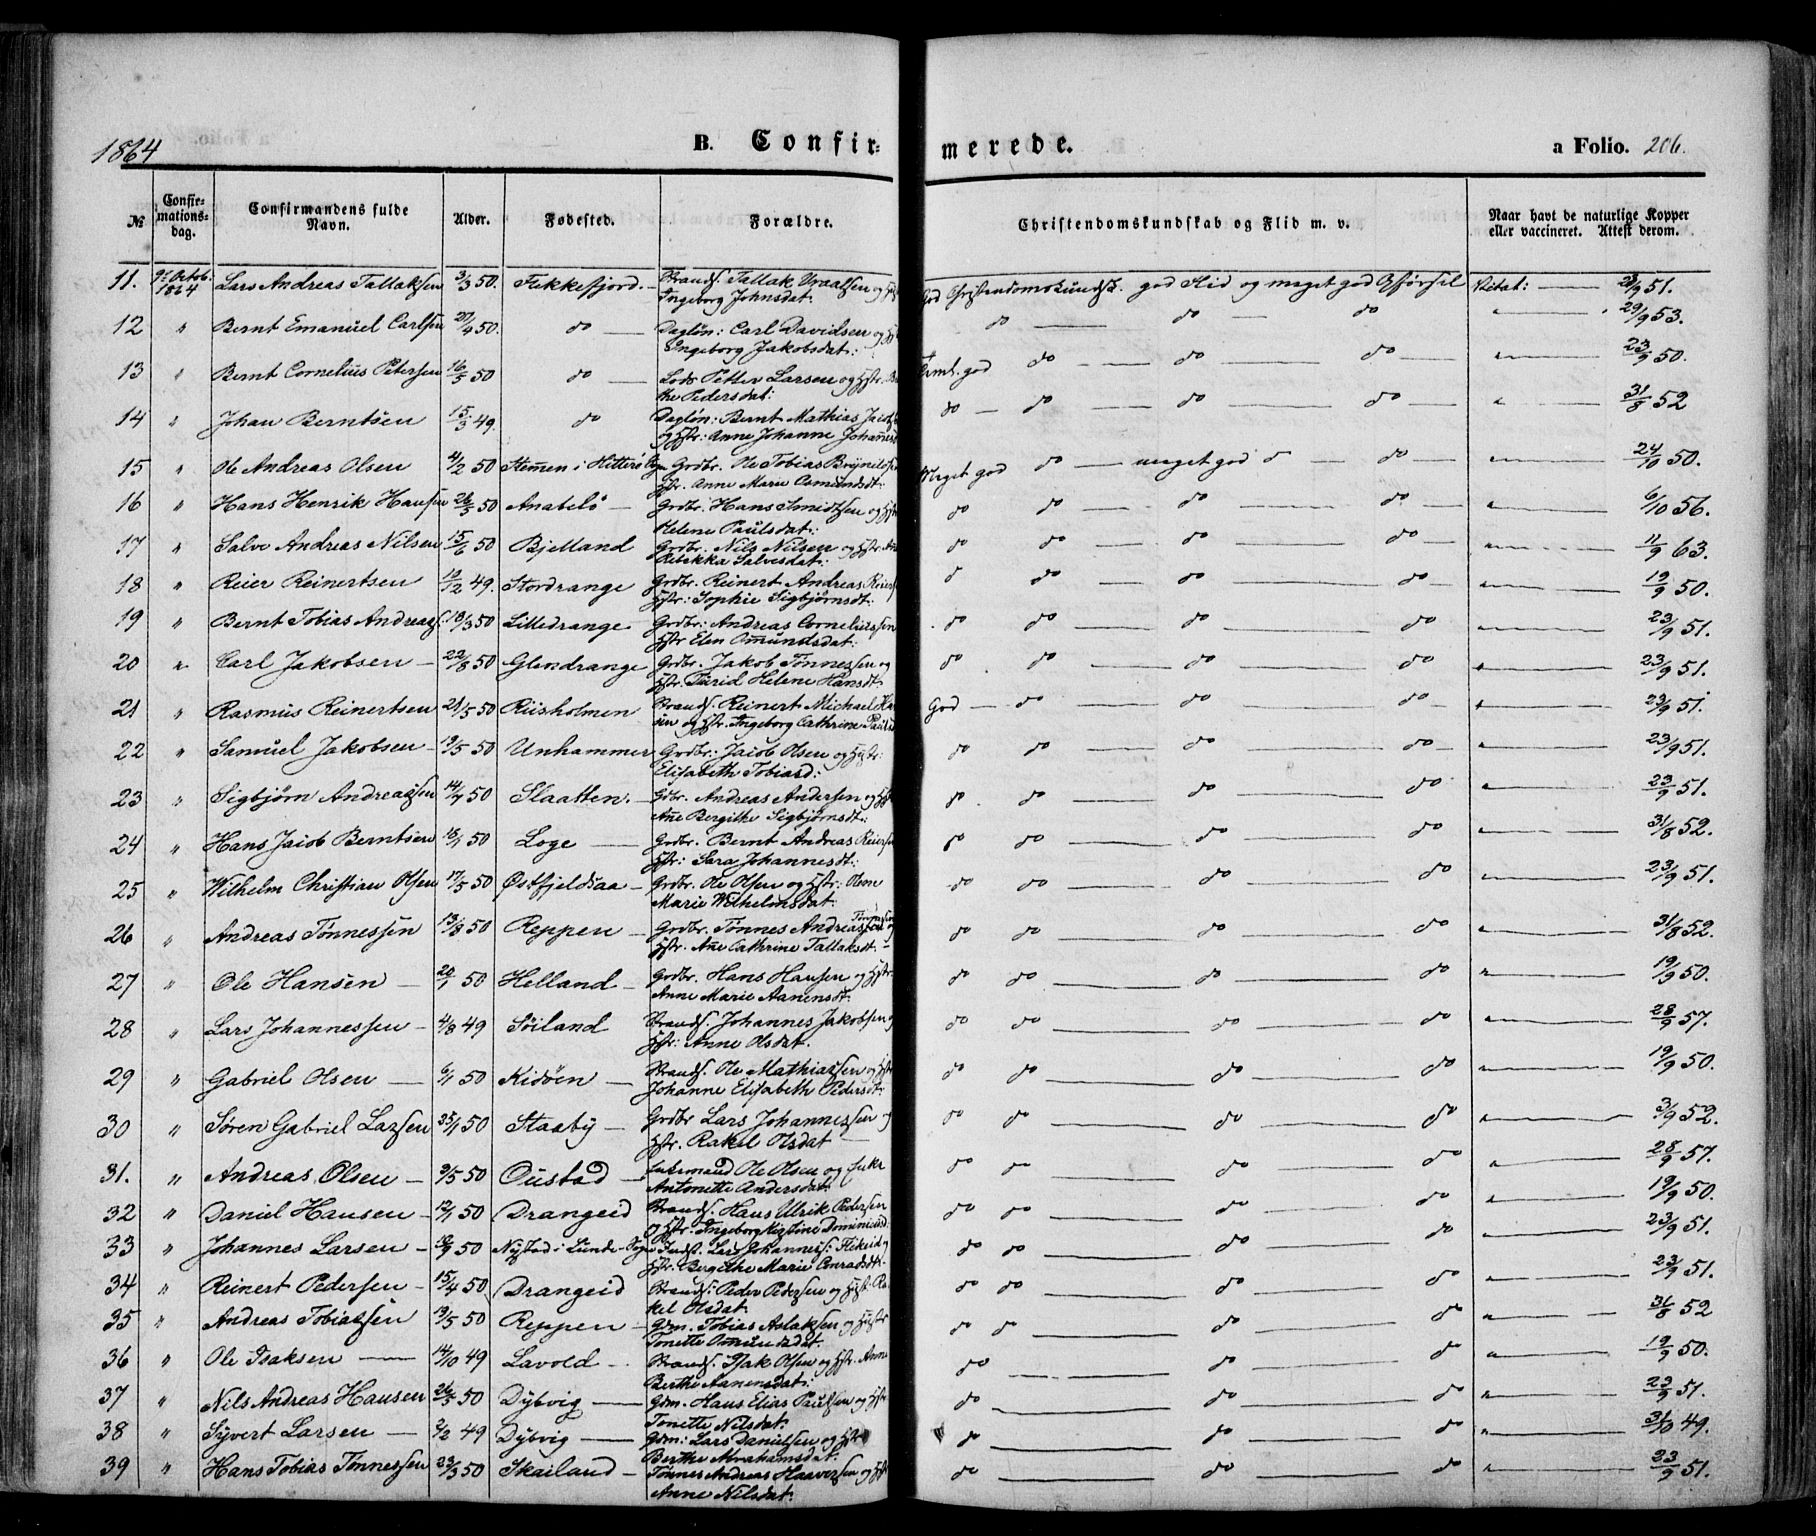 1864 B. Confirmerede. a Folio. 206.
№ Confirmationsdag. Confirmandens fulde Navn. Alder. Fødested. Forældre. Christendomskundskab og Flid m. v. Naar havt de naturlige Kopper eller vaccineret. Attest derom.
11. 9de Octob: 1864 Lars Andreas Tallaksen 3/3 50. Fækkefjord. Tallak og Ingeborg Johnsdat: God Christendomskundsk. god Flid og meget god Opførsel 23/9 51.
12 " Bernt Emanuel Carlsen 50. do Dagløn: Carl Davidsen og Ingeborg Jakobsdat: do do do " 29/9 53.
13 " Bernt Cornelius Petersen 16/5 50 do Lods Petter Larsen og Hstr. Pedersdat: Teml. god do do do " 23/9 50.
14 " Johan Berntsen 15/3 49. do Dagløn: Bernt Mathias og Hstr: Anne Johanne do do do do " 31/8 52
15 " Ole Andreas Olsen 4/2 50 Stemmen i Hitterø Sogn Grdbr. Ole Tobias Hstr. Anne Marie Osmundsdt: Meget god do meget god do do " 24/10 50.
16 " Hans Henrik Hansen 26/5 50 Anabelø Grdbr. Hans Smidtsen og Hstr Helene Paulsdat: do do do do " 6/10 56.
17 " Salve Andreas Nilsen 15/6 50 Bjelland Grdbr. Nils Nilsen og Hstr. Rebekka Salvesdat: do do do do " 11/9 63.
18 " Reier Reinertsen 49. Stordrange Grdbr. Reinert Andreas Reiersen Hstr: Sophie Sigbjørnsdt: do do do do " 19/9 50.
19 " Bernt Tobias Andreas. 18/3 50 Lilledrange Grdbr: Andreas Corneliussen Hstr Elen Omundsdat: do do do do " 23/9 51.
20 " Carl Jakobsen 22/8 50 Glendrange Grdbr: Jakob Tønnessen og Hstr. Turid Helene Hansdt: do do do do " 23/9 51.
21 " Rasmus Reinertsen 21/5 50 Riisholmen Strands. Reinert Michael og Hstr. Ingeborg Cathrine God do do do " 23/9 51.
22 " Samuel Jakobsen 19/5 50 Unhammer Grdbr: Jacob Olsen og Hstr: Elisabeth Tobiasd: do do do do " 23/9 51.
23 " Sigbjørn Andreassen 14/7 50 Slaatten. Gdbr. Andreas Andersen og Hstr Ane Bergithe Sigbjørnsdt: do do do do " 23/9 51.
24 " Hans Jacob Berntsen 18/1 50 Loge Grdbr. Bernt Andreas Reiersen Hstr: Sara Johannesdt: do do do do " 31/8 52.
25 " Wilhelm Christian Olsen 17/5 50 Østfjeldsaa Grdbr. Ole Olsen og Hstr: Marie Wilhelmsdat: do do do do " 23/9 51.
26 " Andreas Tønnessen 13/8 50 Reppen Grdbr. Tønnes Andreas Tønnessen og Hstr. Ane Cathrine Tallaksdt. do do do do " 31/8 52.
27 " Ole Hansen 20/1 50 Helland Grdbr. Hans Hansen og Hstr. Anne Marie Aanensdt. do do do do " 19/9 50.
28 " Lars Johannessen 4/8 49 Søiland Strands. Johannes Jakobsen og Hstr: Anne Olsdat. do do do do " 28/9 57.
29 " Gabriel Olsen 6/1 50 Kidøen Strands. Ole Mathiassen og Hstr Johanne Elisabeth Pedersdt: do do do do " 19/9 50.
30 " Søren Gabriel Larsen 25/1 50 Staaby Grdbr Lars Johannessen og Hstr. Rakel Olsdat do do do do " 3/9 52.
31. " Andreas Olsen 9/5 50 Oustad Enkemand Ole Olsen og Enke Antonette Andersdat: do do do do " 28/9 57.
32 " Daniel Hansen 12/1 50 Drangeid Strands. Hans Ulrik Pedersen og Hstr. Ingeborg Kistine do do do do " 19/9 50.
33 " Johannes Larsen 50 Nystad i Lunde Sogn Lars Johannes: Flikeid og Hstr. Bergithe Marie Conradsdt. do do do do " 23/9 51.
34 " Reinert Pedersen 15/4 50 Drangeid Strands: Peder Pedersen og Hstr Rakel Olsdat. do do do do " 23/9 51.
35 " Andreas Tobiassen 13/5 50 Reppen Gdm. Tobias Aslaksen og Hustr Tonette Omundsdat. do do do do " 31/8 52
36 " Ole Isaksen 14/10 49 Lavold Strands. Isak Olsen og Hstr. Anne Berthe Aanensdat: do do do " 19/9 50.
37 " Nils Andreas Hansen 26/5 50 Dybvig Gdm. Hans Elias Paulsen og Hstr Tonette Nilsdat: do do do " 23/9 51.
38 " Syvert Larsen 2/2 49 Dybvig Gdm: Lars Danielsen og Hstr Berthe Abrahamsdat. do do do " 31/10 49.
39 " Hans Tobias Tønnessen 23/3 50 Skailand Tønnes Andreas Haaversen og Hstr Anne Nilsdat: do do do " 23/9 51.